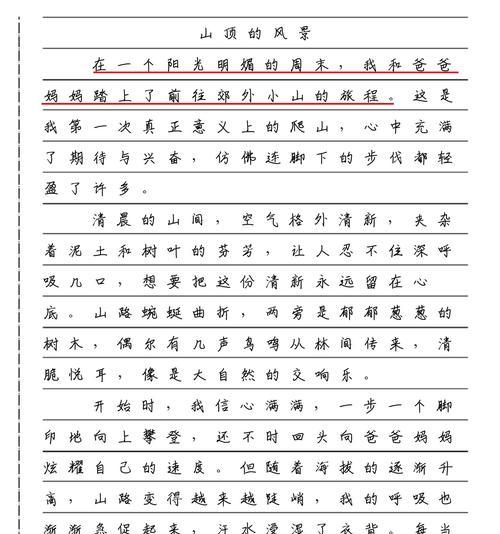 山顶的风景
在一个阳光明媚的周末，我和爸爸
妈妈踏上了前往郊外小山的旅程。这是
我第一次真正意义上的爬山，心中充满
了期待与兴奋，仿佛连脚下的步伐都轻
盈了许多。
清晨的山间，空气格外清新，夹杂
着泥土和树叶的芬芳，让人忍不住深呼
吸几口，想要把这份清新永远留在心
底。山路蜿蜒曲折，两旁是郁郁葱葱的
树木，偶尔有几声鸟鸣从林间传来，清
脆悦耳，像是大自然的交响乐。
开始时，我信心满满，一步一个脚
印地向上攀登，还不时回头向爸爸妈妈
炫耀自己的速度。但随着海拔的逐渐升
高，山路变得越来越陡峭，我的呼吸也
渐渐急促起来，汗水浸湿了衣背。每当